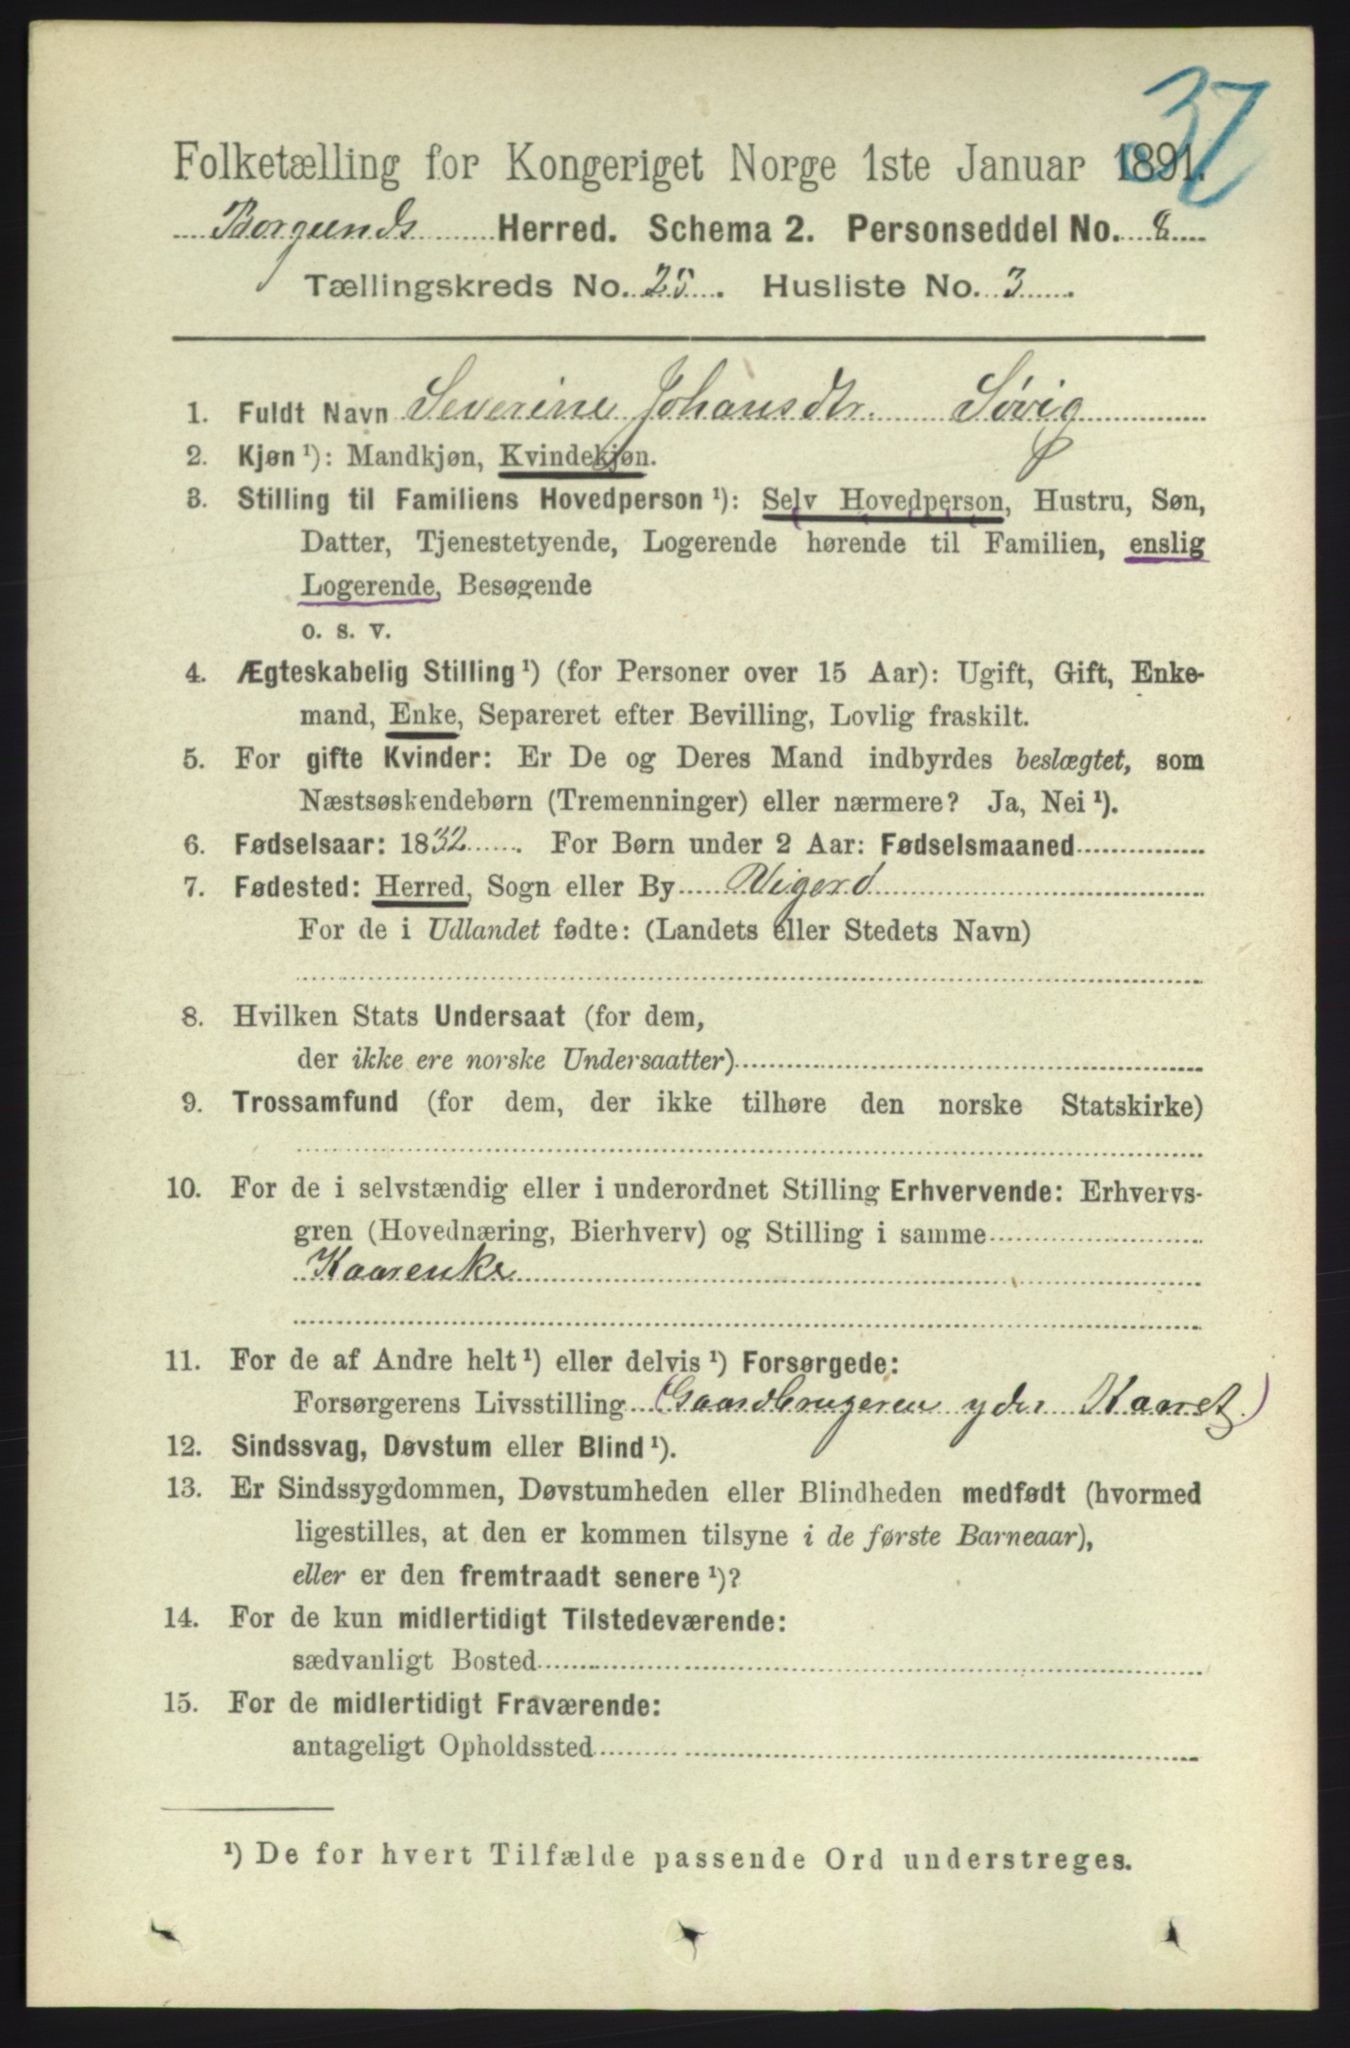 37
Folketælling for Kongeriget Norge 1ste Januar 1891.
Borgunds Herred. Schema 2. Personseddel No. 8
Tællingskreds No. 25. Husliste No. 3.
1. Fuldt Navn Severine Johansdtr. Søvig
2. Kjøn ¹): Mandkjøn, Kvindekjøn.
3. Stilling til Familiens Hovedperson ¹): Selv Hovedperson, Hustru, Søn,
Datter, Tjenestetyende, Logerende hørende til Familien, enslig
Logerende, Besøgende
o. s. v.
4. Ægteskabelig Stilling ¹) (for Personer over 15 Aar): Ugift, Gift, Enke-
mand, Enke, Separeret efter Bevilling, Lovlig fraskilt.
5. For gifte Kvinder: Er De og Deres Mand indbyrdes beslægtet, som
Næstsøskendebørn (Tremenninger) eller nærmere? Ja, Nei ¹).
6. Fødselsaar: 1832. For Børn under 2 Aar: Fødselsmaaned
7. Fødested: Herred, Sogn eller By Vigerd
For de i Udlandet fødte: (Landets eller Stedets Navn)
8. Hvilken Stats Undersaat (for dem,
der ikke ere norske Undersaatter)
9. Trossamfund (for dem, der ikke tilhøre den norske Statskirke)
10. For de i selvstændig eller i underordnet Stilling Erhvervende: Erhvervs-
gren (Hovednæring, Bierhverv) og Stilling i samme
Kaarenke
11. For de af Andre helt ¹) eller delvis ¹) Forsørgede:
Forsørgerens Livsstilling (Gaardbrugeren yder Kaaret)
12. Sindssvag, Døvstum eller Blind ¹).
13. Er Sindssygdommen, Døvstumheden eller Blindheden medfødt (hvormed
ligestilles, at den er kommen tilsyne i de første Barneaar),
eller er den fremtraadt senere ¹)?
14. For de kun midlertidigt Tilstedeværende:
sædvanligt Bosted
15. For de midlertidigt Fraværende:
antageligt Opholdssted
¹) De for hvert Tilfælde passende Ord understreges.